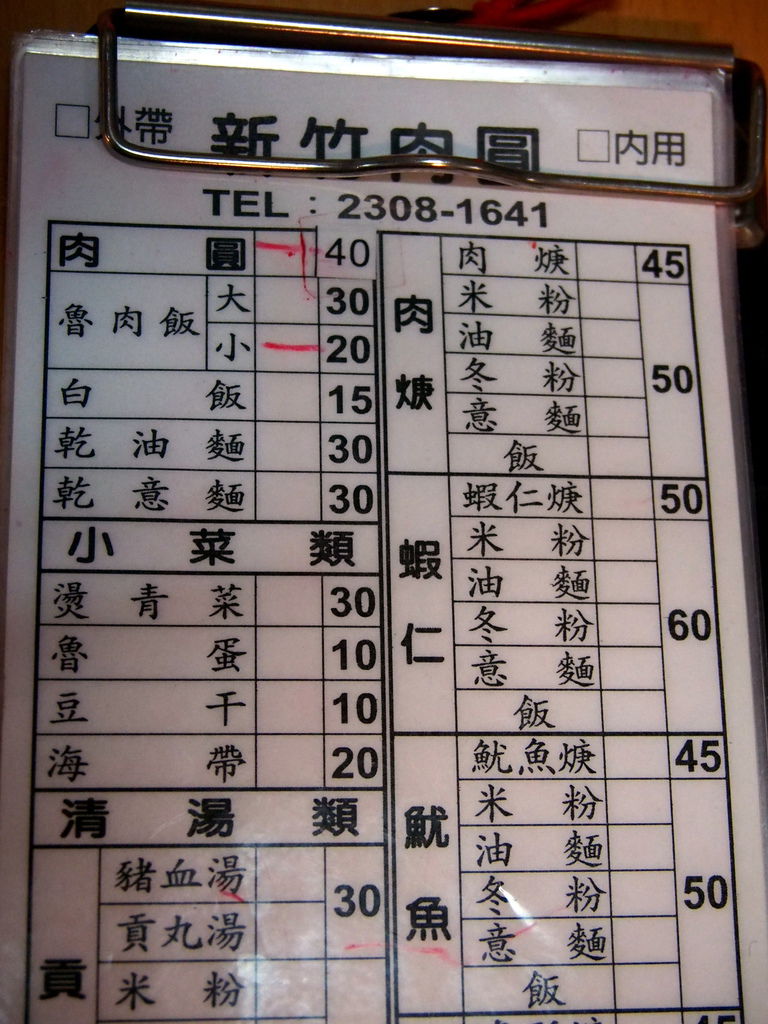 □外帶 新竹肉圓 □內用
TEL：2308-1641
肉圓 40
魯肉飯 大 30
小 20
白飯 15
乾油麵 30
乾意麵 30
小菜類
燙青菜 30
魯蛋 10
豆干 10
海帶 20
清湯類
貢
豬血湯 30
貢丸湯
米粉
肉焿
肉焿 45
米粉 50
油麵
冬粉
意麵
飯
蝦仁
蝦仁焿 50
米粉 60
油麵
冬粉
意麵
飯
魷魚
魷魚焿 45
米粉 50
油麵
冬粉
意麵
飯